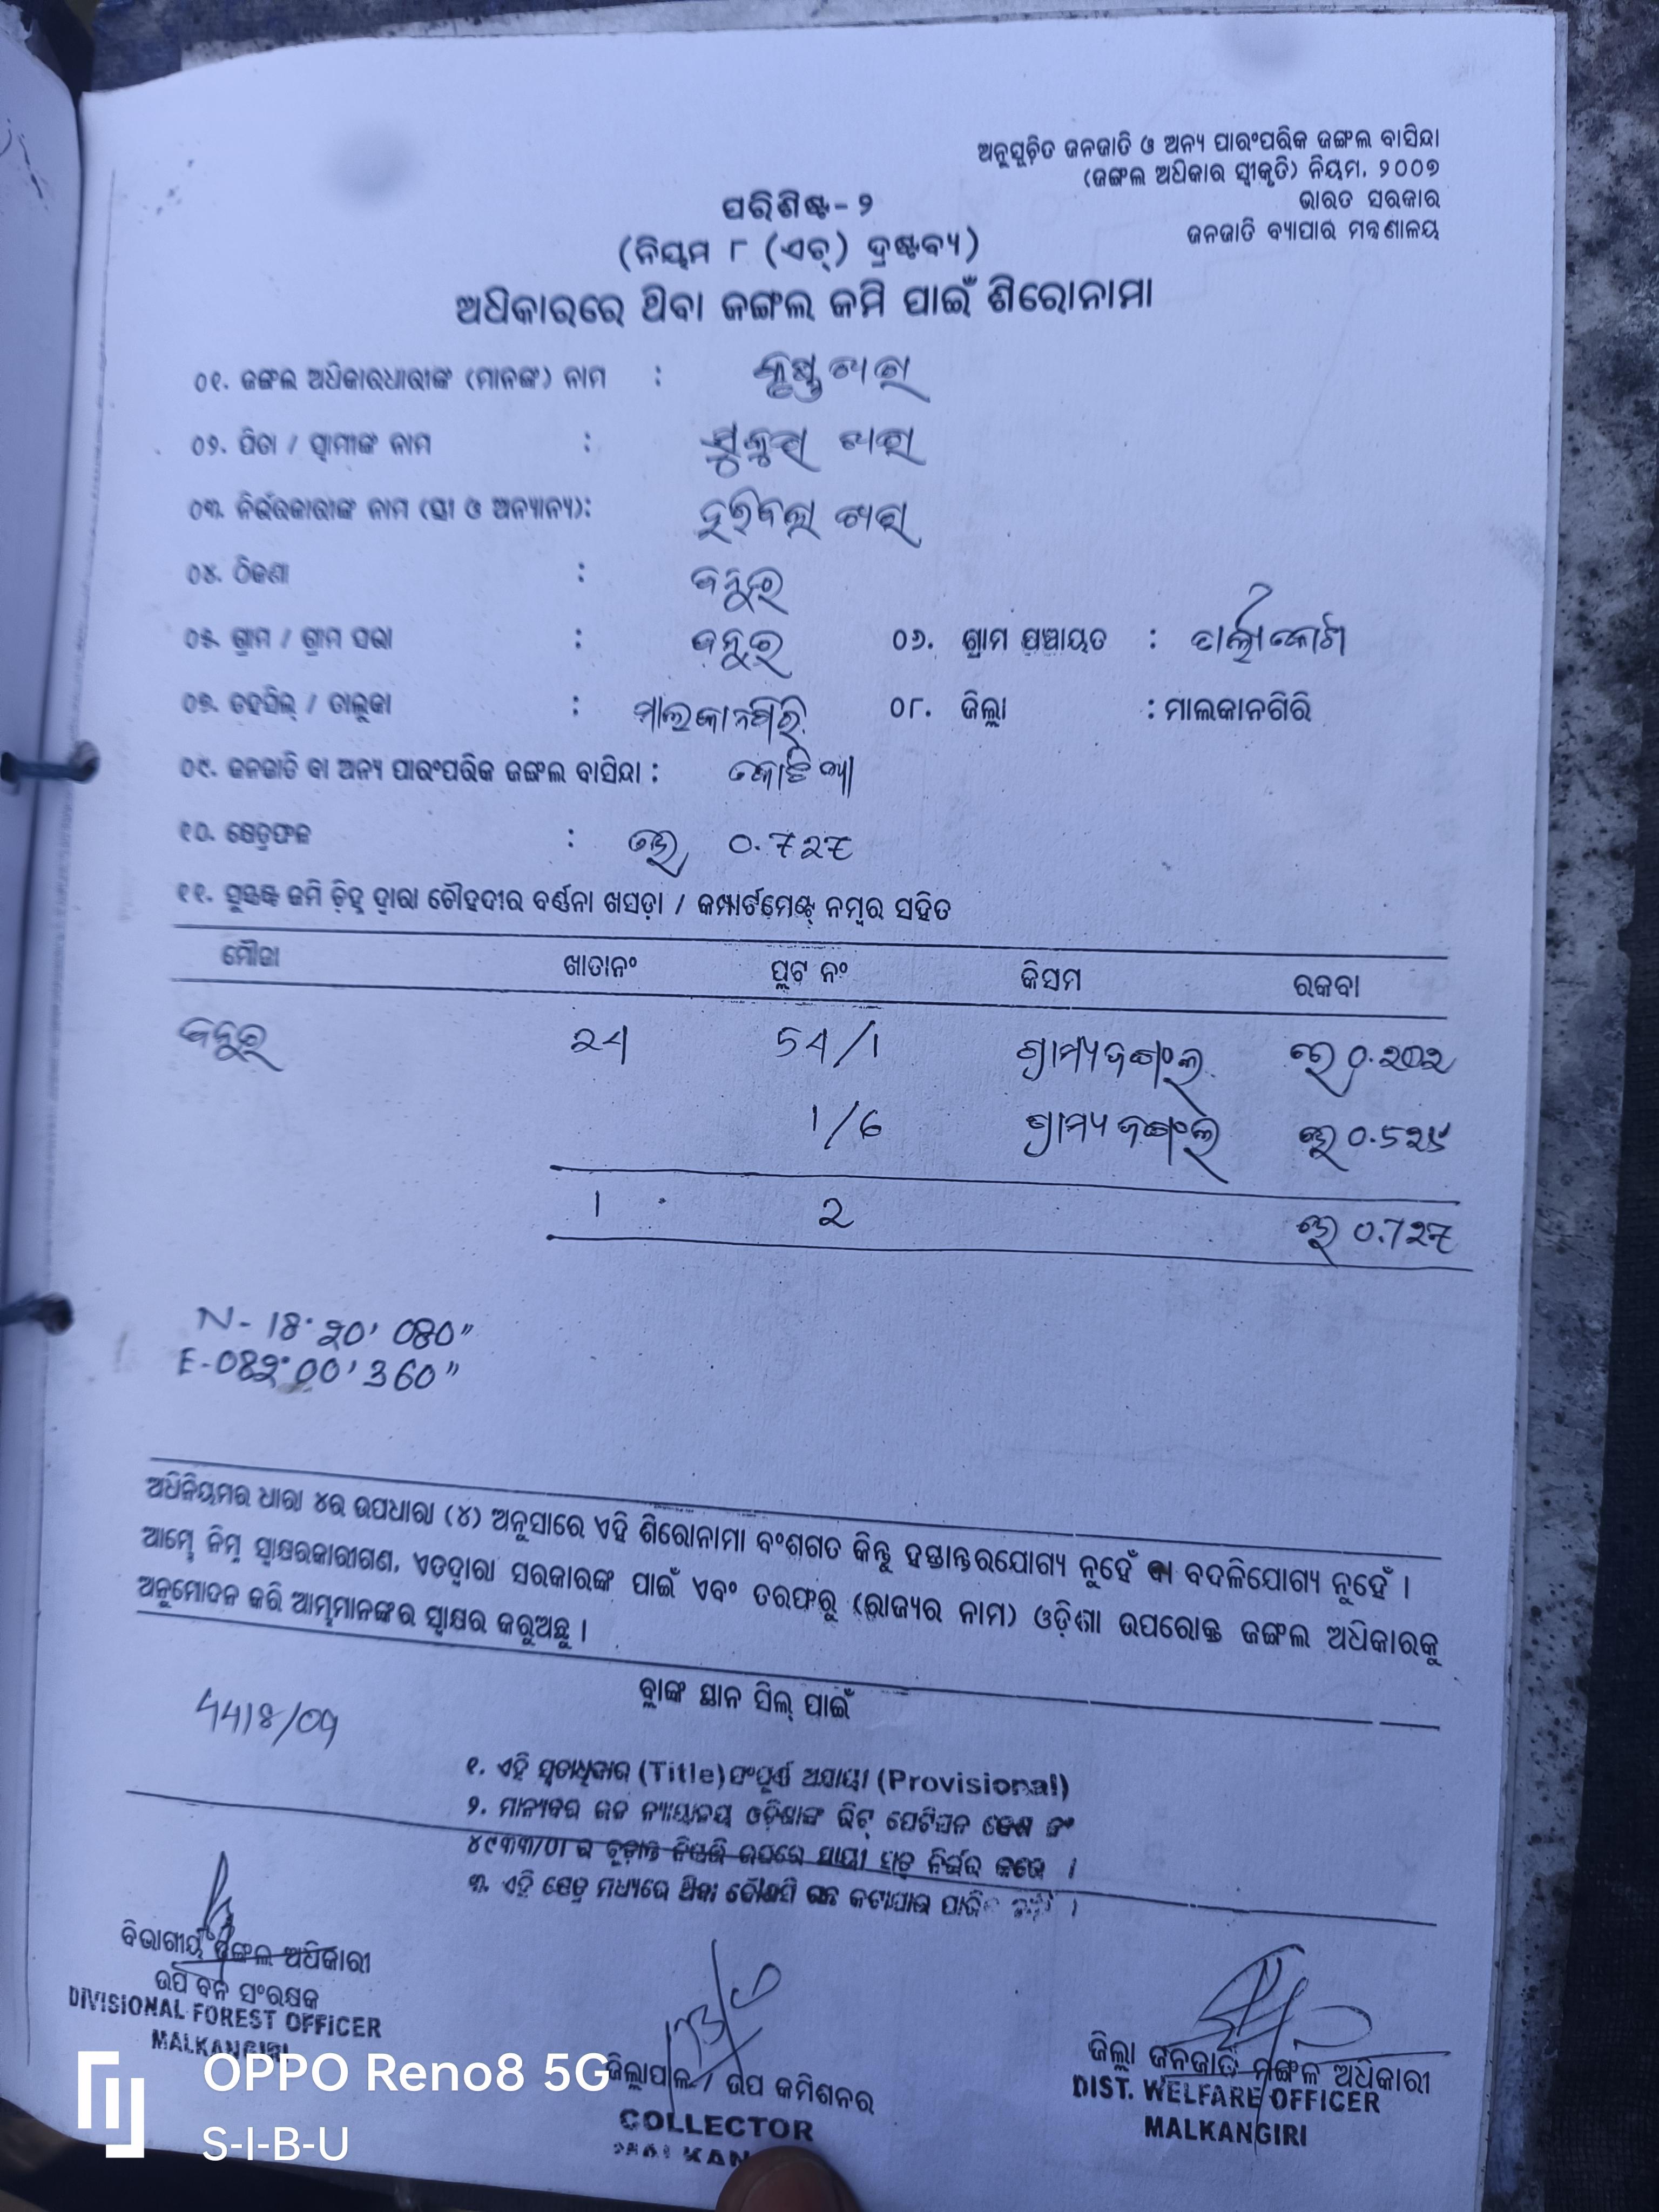 ଅନୁସୂଚିତ ଜନଜାତି ଓ ଅନ୍ୟ ପାରଂପରିକ ଜଙ୍ଗଲ ବାସିନ୍ଦା
(ଜଙ୍ଗଲ ଅଧିକାର ସ୍ୱୀକୃତି) ନିୟମ, ୨୦୦୭
ଭାରତ ସରକାର
ଜନଜାତି ବ୍ୟାପାର ମନ୍ତ୍ରଣାଳୟ
ପରିଶିଷ୍ଟ-୨
(ନିୟମ ୮ (ଏଚ୍) ଦ୍ରଷ୍ଟବ୍ୟ)
ଅଧିକାରରେ ଥିବା ଜଙ୍ଗଲ ଜମି ପାଇଁ ଶିରୋନାମା
୦୧. ଜଙ୍ଗଲ ଅଧିକାରଧାରୀଙ୍କ (ମାନଙ୍କ) ନାମ : କୃଷ୍ଣ
୦୨. ପିତା / ସ୍ୱାମୀଙ୍କ ନାମ :
୦୩. ନିର୍ଭରକାରୀଙ୍କ ନାମ (ସ୍ତ୍ରୀ ଓ ଅନ୍ୟାନ୍ୟ):
୦୪. ଠିକଣା :
୦୫. ଗ୍ରାମ / ଗ୍ରାମ ସଭା : ୦୬. ଗ୍ରାମ ପଞ୍ଚାୟତ :
୦୭. ତହସିଲ୍ / ତାଲୁକା : ମାଲକାନଗିରି ୦୮. ଜିଲ୍ଲା : ମାଲକାନଗିରି
୦୯. ଜନଜାତି ବା ଅନ୍ୟ ପାରଂପରିକ ଜଙ୍ଗଲ ବାସିନ୍ଦା :
୧୦. କ୍ଷେତ୍ରଫଳ : ହେ 0.727
୧୧. ସୁସ୍ପଷ୍ଟ ଜମି ଚିହ୍ନ ଦ୍ୱାରା ଚୌହଦୀର ବର୍ଣ୍ଣନା ଖସଡ଼ା / କମ୍ପାର୍ଟମେଣ୍ଟ୍ ନମ୍ବର ସହିତ
ମୌଜା ଖାତାନଂ ପ୍ଲଟ ନଂ କିସମ ରକବା
24 54/1 ଗ୍ରାମ୍ୟ ଜଙ୍ଗଲ ହେ 0.202
1/6 ଗ୍ରାମ୍ୟ ଜଙ୍ଗଲ ହେ 0.525
1 2 ହେ 0.727
N- 18° 20' 080"
E-082° 00' 360"
ଅଧିନିୟମର ଧାରା ୪ର ଉପଧାରା (୪) ଅନୁସାରେ ଏହି ଶିରୋନାମା ବଂଶଗତ କିନ୍ତୁ ହସ୍ତାନ୍ତରଯୋଗ୍ୟ ନୁହେଁ ବା ବଦଳିଯୋଗ୍ୟ ନୁହେଁ ।
ଆମ୍ଭେ ନିମ୍ନ ସ୍ୱାକ୍ଷରକାରୀଗଣ, ଏତଦ୍ୱାରା ସରକାରଙ୍କ ପାଇଁ ଏବଂ ତରଫରୁ (ରାଜ୍ୟର ନାମ) ଓଡ଼ିଶା ଉପରୋକ୍ତ ଜଙ୍ଗଲ ଅଧିକାରକୁ
ଅନୁମୋଦନ କରି ଆମ୍ଭମାନଙ୍କର ସ୍ୱାକ୍ଷର କରୁଅଛୁ ।
ବ୍ଲାଙ୍କ ସ୍ଥାନ ସିଲ୍ ପାଇଁ
୧. ଏହି (Title) ସଂପୂର୍ଣ୍ଣ ଅସ୍ଥାୟୀ (Provisional)
୨. ମାନ୍ୟବର ଉଚ୍ଚ ନ୍ୟାୟାଳୟ ଓଡ଼ିଶାଙ୍କ ରିଟ୍ ପେଟିସନ କେଶ ନଂ
ଉପରେ ନିର୍ଭର କରେ ।
୩. ଏହି କ୍ଷେତ୍ର ମଧ୍ୟରେ ଥିବା କୌଣସି ଗଛ କଟାଯାଇ
ବିଭାଗୀୟ ଜଙ୍ଗଲ ଅଧିକାରୀ
ଉପ ବନ ସଂରକ୍ଷକ
DIVISIONAL FOREST OFFICER
MALKANGIRI
ଜିଲ୍ଲାପାଳ / ଉପ କମିଶନର
COLLECTOR
ଜିଲ୍ଲା ଜନଜାତି ମଙ୍ଗଳ ଅଧିକାରୀ
DIST. WELFARE OFFICER
MALKANGIRI
OPPO Reno8 5G
S-I-B-U